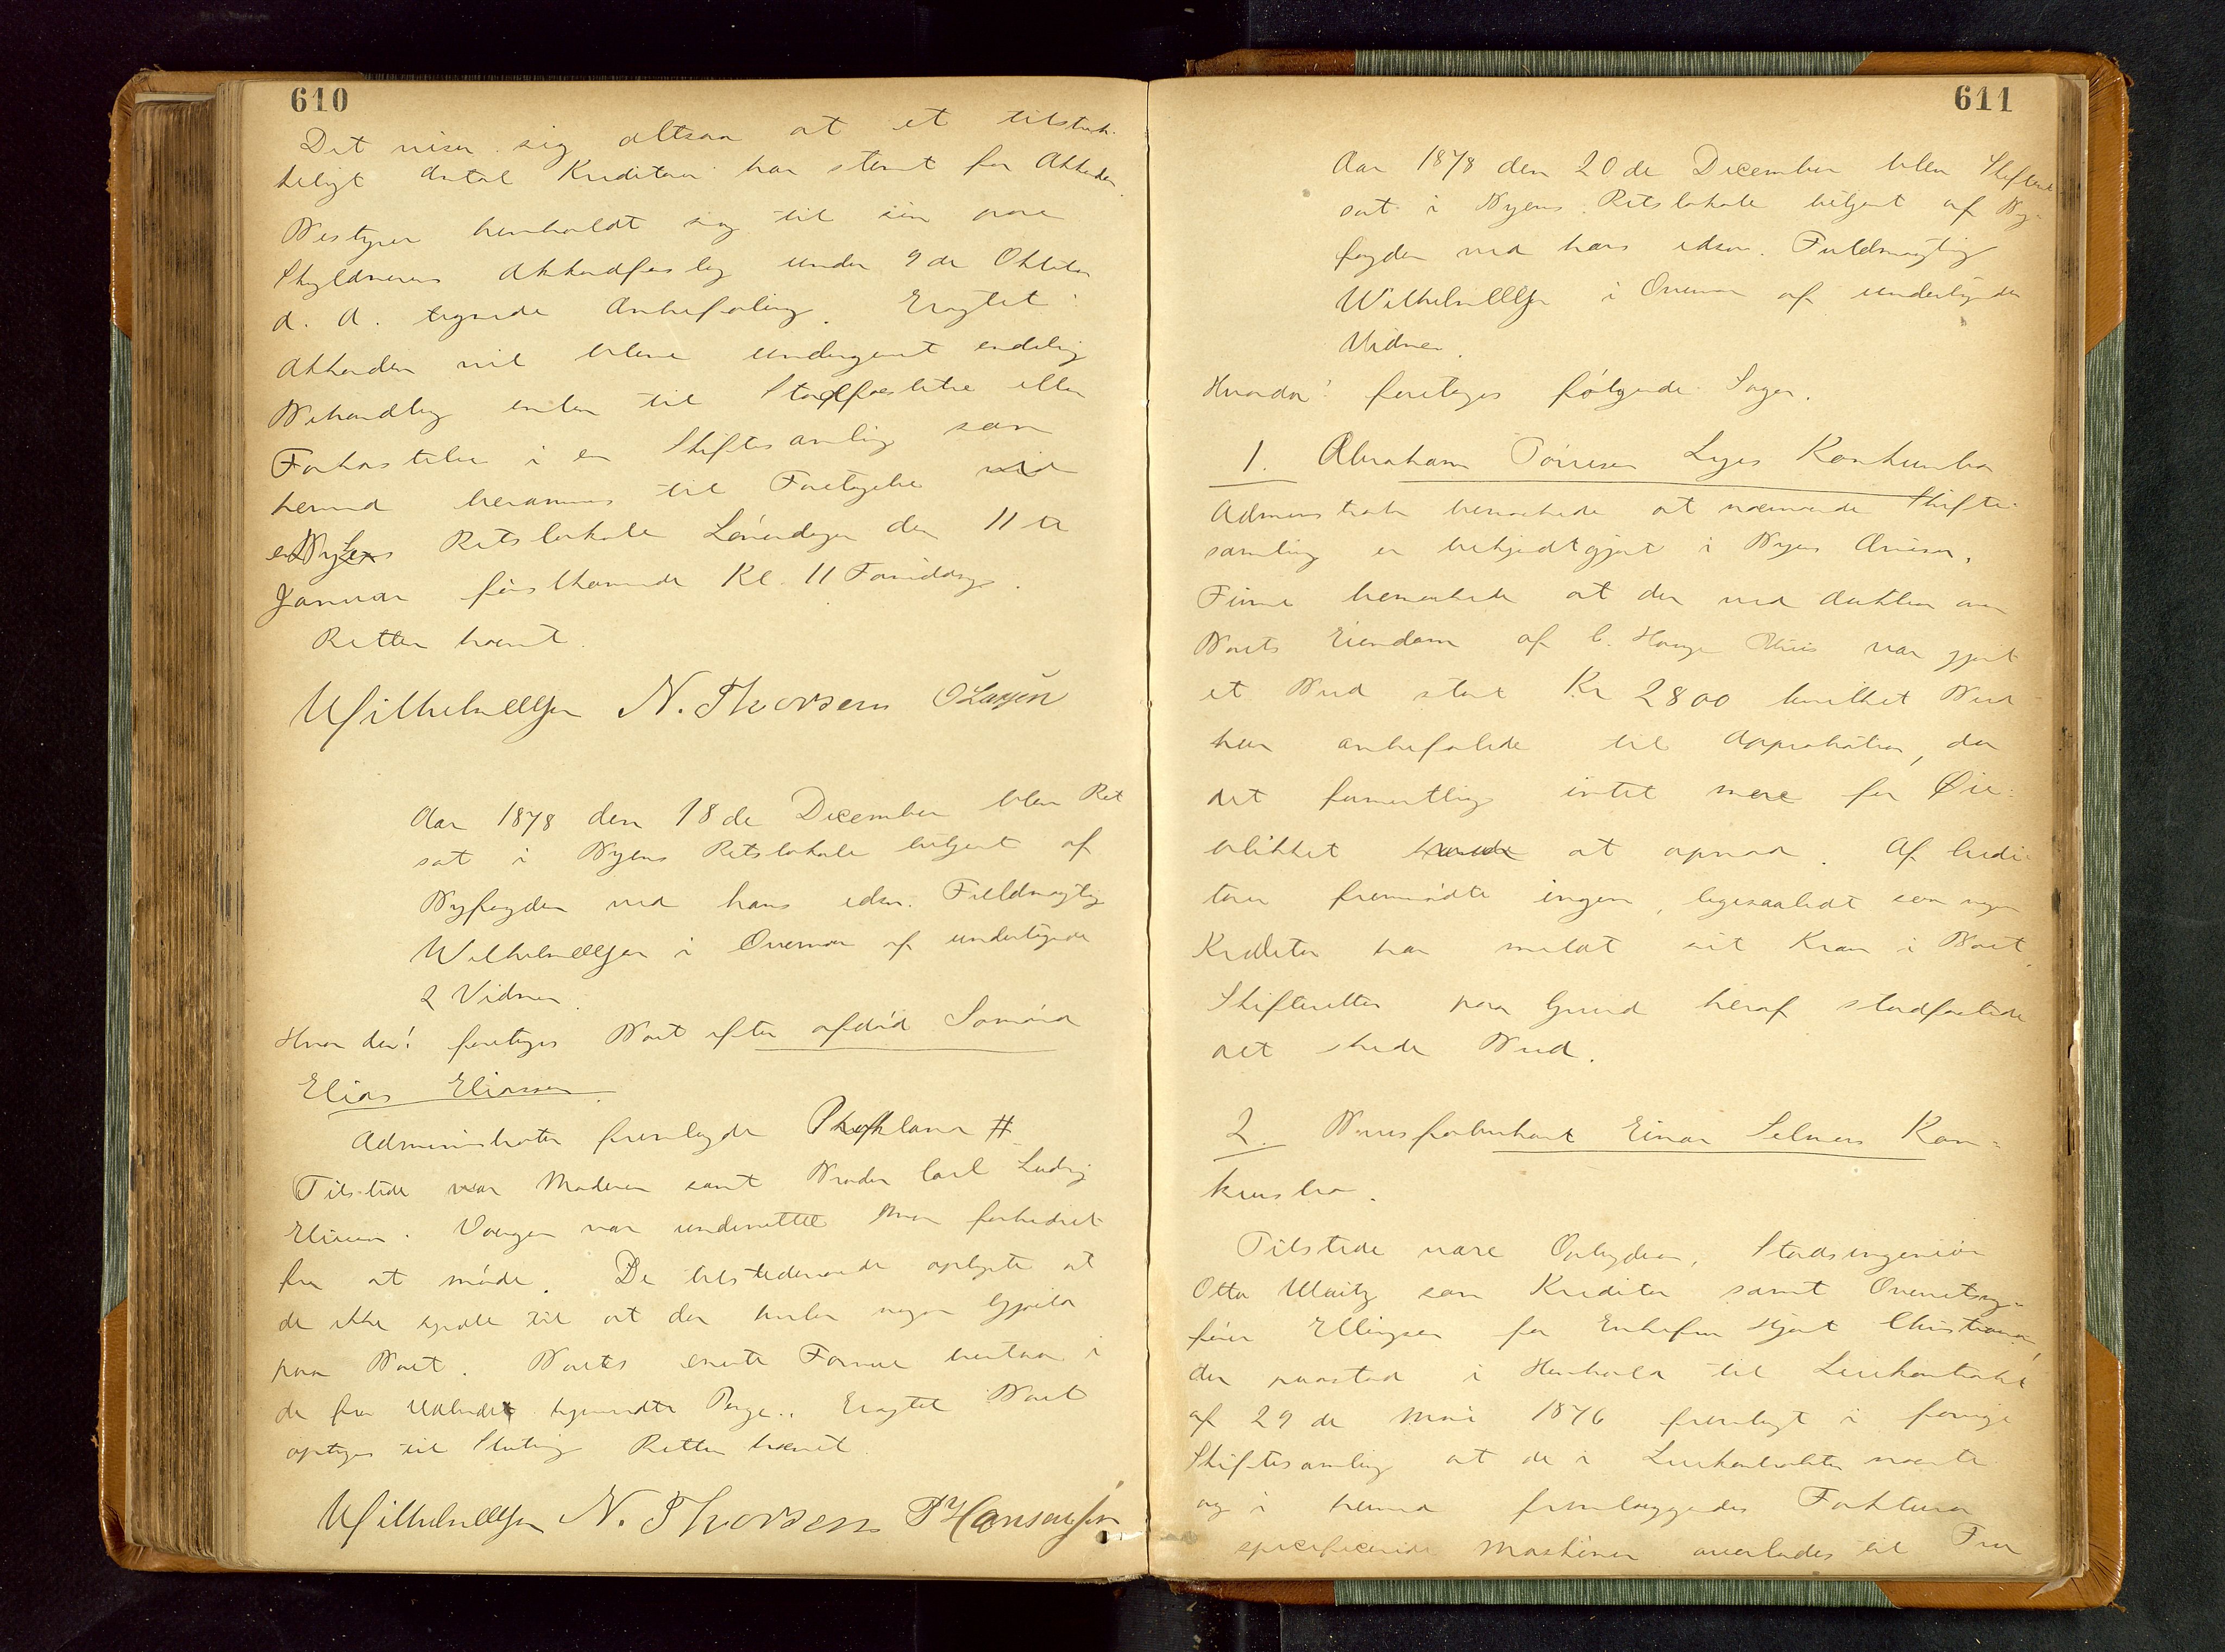 610
Det viser sig altsaa at et tilstræk-
keligt Antal Kreditorer har stemt for Akkorden.
Bestyrer henholdt sig til sin paa
Skyldnerens Akkordforslag under 9de Oktober
d. A. tegnede Anbefaling. Eragtet:
Akkorden vil blive undergivet endelig
Behandling enten til Stadfæstelse eller
Forkastelse i en Skiftesamling som
herved berammes til Foretagelse ved
Byens Retslokale Løverdagen den 11te
Januar førstkommende Kl. 11 Formiddag.
Retten hævet.
Wilhelm Ellefsen N. Thorsen O Larsen
Aar 1878 den 18de December blev Ret
sat i Byens Retslokale betjent af
Byfogden ved hans edsv. Fuldmægtig
Wilhelm Ellefsen i Overvær af undertegnede
2 Vidner.
Hvor da! foretoges Boet efter afdød Sømand
Elias Eliassen.
Administrator fremlagde Proklama #
Tilstede var Moderen samt Broder Carl Ludvig
Eliassen. Værgen var underrettet men forhindret
fra at møde. De tilstedeværende oplyste at
de ikke kjendte til at der hviler nogen Gjæld
paa Boet. Boets eneste Formue bestaar i
de fra Udlandet hjemsendte Penge. Eragtet Boet
optages til Slutning Retten hævet
Wilhelm Ellefsen N. Thorsen P Hansensen
611
Aar 1878 den 20de December blev Skifteret
sat i Byens Retslokale betjent af By-
fogden ved hans edsv. Fuldmægtig
Wilhelm Ellefsen i Overvær af undertegnede
Vidner.
Hvorda! foretoges følgende Sager.
1. Abraham Tørresen Lyes Konkursbo
Administrator bemærkede at nærværende Skifte-
samling er bekjendtgjort i Byens Aviser.
Finne bemærkede at der ved Auktion over
Boets Eiendom af C. Hauge Thiis var gjort
et Bud stort Kr 2800 hvilket Bud
han anbefalede til Approbation, da
det formentlig intet mere for Øie-
blikket var at opnaa. Af Kredi-
torer fremmødte ingen, ligesaalidt som nogen
Kreditor har meldt sit Krav i Boet.
Skifteretten paa Grund heraf stadfæstede
det skede Bud.
2. Brusfabrikant Einar Selmers Kon-
kursbo.
Tilstede vare Opbyderen, Stadsingeniør
Otto Waitz som Kreditor samt Overretssag-
fører Ellingsen for Enkefru Hjort Christiania,
der paastod i Henhold til Leiekontrakt
af 29de Mai 1876 fremlagt i forrige
Skiftesamling at de i Leiekontrakten nævnte
og i herved fremlæggendes Faktura
specificerede Maskiner overlades til Fru